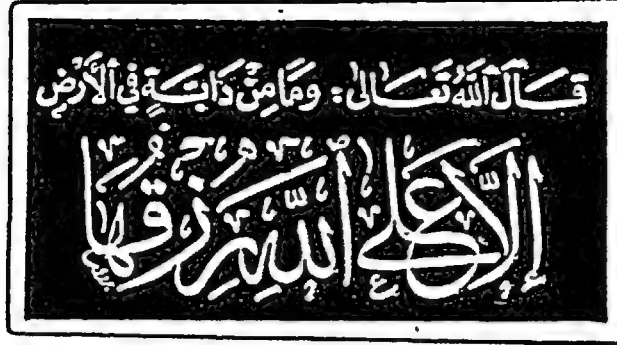 قَالَ ٱللَّهُ تَعَالَىٰ: وَمَا مِنْ دَابَّةٍ فِي ٱلْأَرْضِ
إِلَّا عَلَى ٱللَّهِ رِزْقُهَا